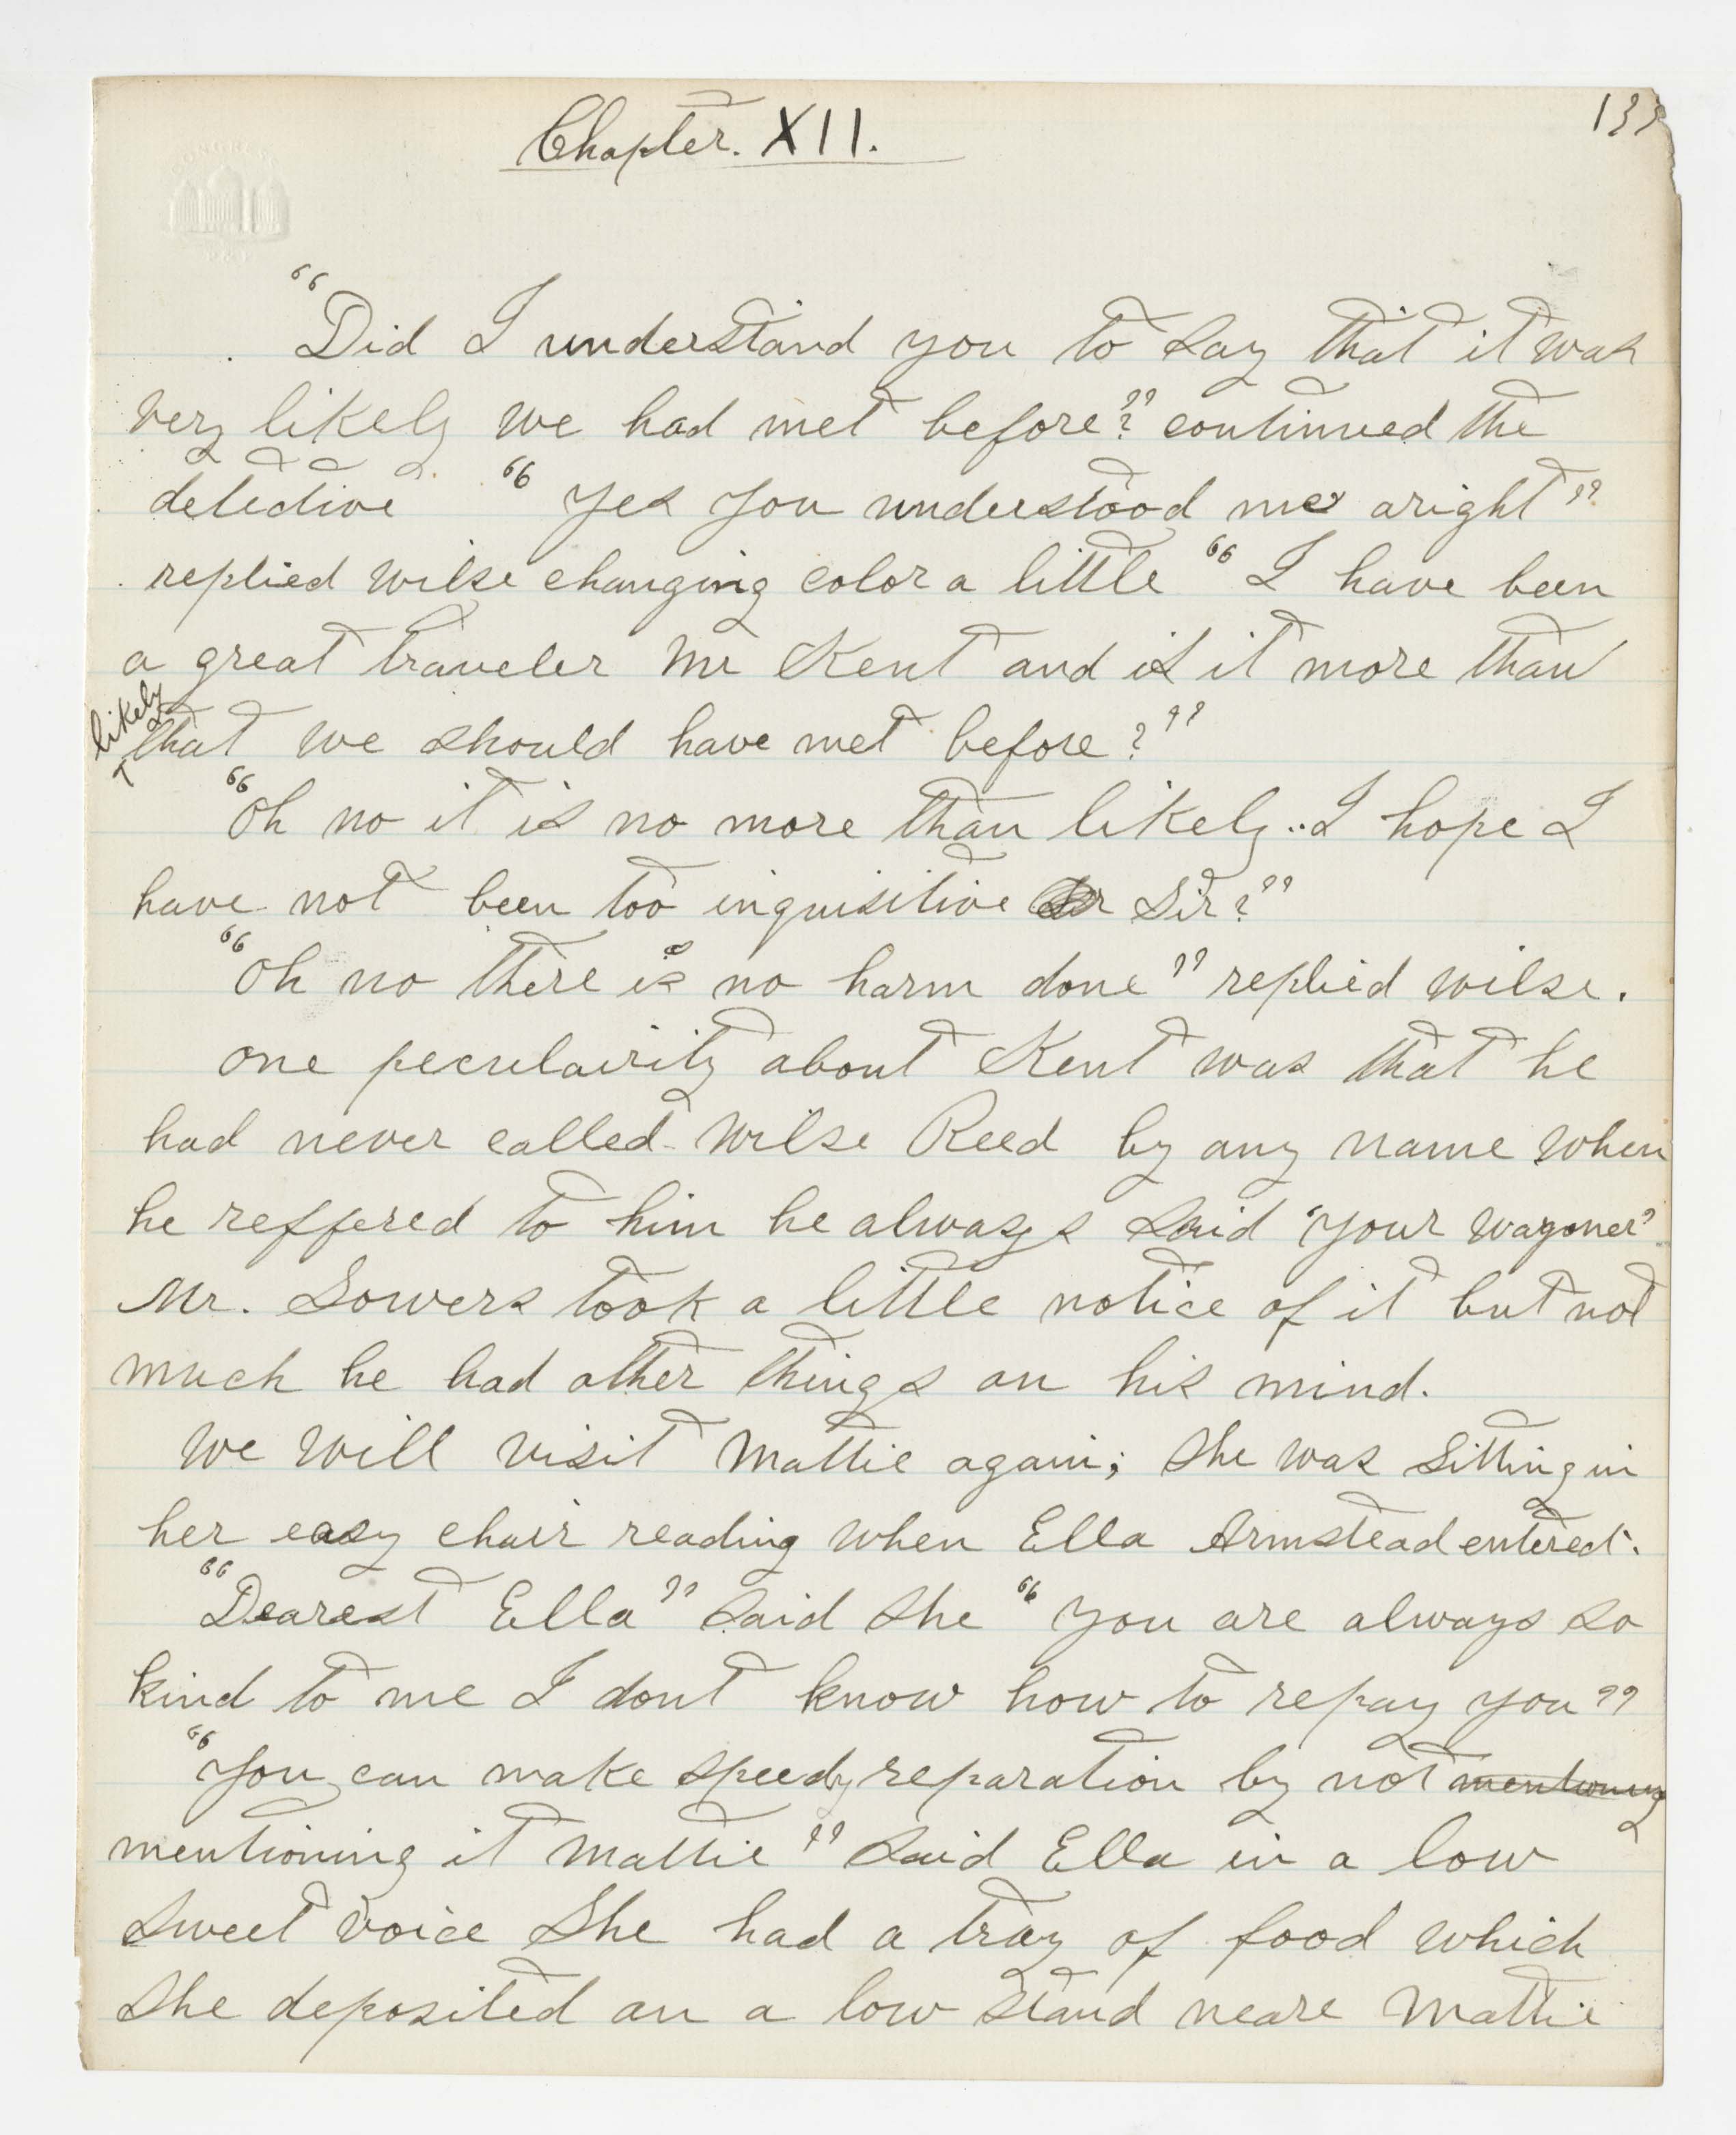 133
Chapter. XII.
CONGRESS
"Did I understand you to say that it was
very likely we had met before?" continued the
detective "Yes you understood me aright"
replied Wilse changing color a little "I have been
a great traveler Mr Kent and is it more than
likely
that we should have met before?"
"Oh no it is no more than likely.. I hope I
have not been too inquisitive Sir?"
"Oh no there is no harm done" replied Wilse.
One peculairity about Kent was that he
had never called Wilse Reed by any name when
he reffered to him he always said "your wagoner"
Mr. Sowers took a little notice of it but not
much he had other things on his mind.
We will visit Mattie again; She was Sitting in
her easy chair reading when Ella Armstead entered.
"Dearest Ella" said she "you are always so
kind to me I dont know how to repay you"
"You can make speedy reparation by not mentioning
mentioning it Mattie" said Ella in a low
sweet voice She had a tray of food which
She deposited on a low stand neare Mattie